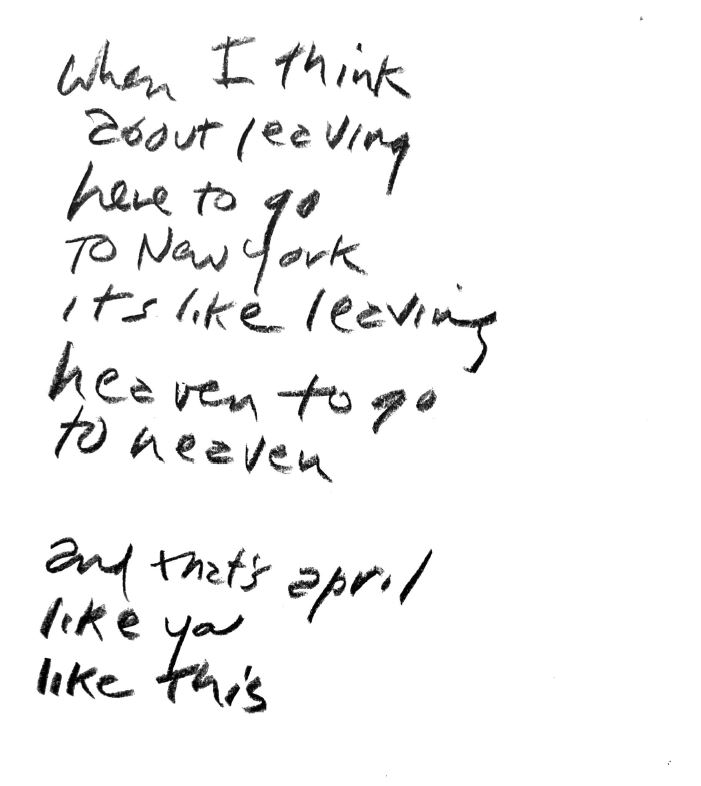 when I think
about leaving
here to go
TO New York
it's like leaving
heaven to go
to heaven
and that's april
like you
like this